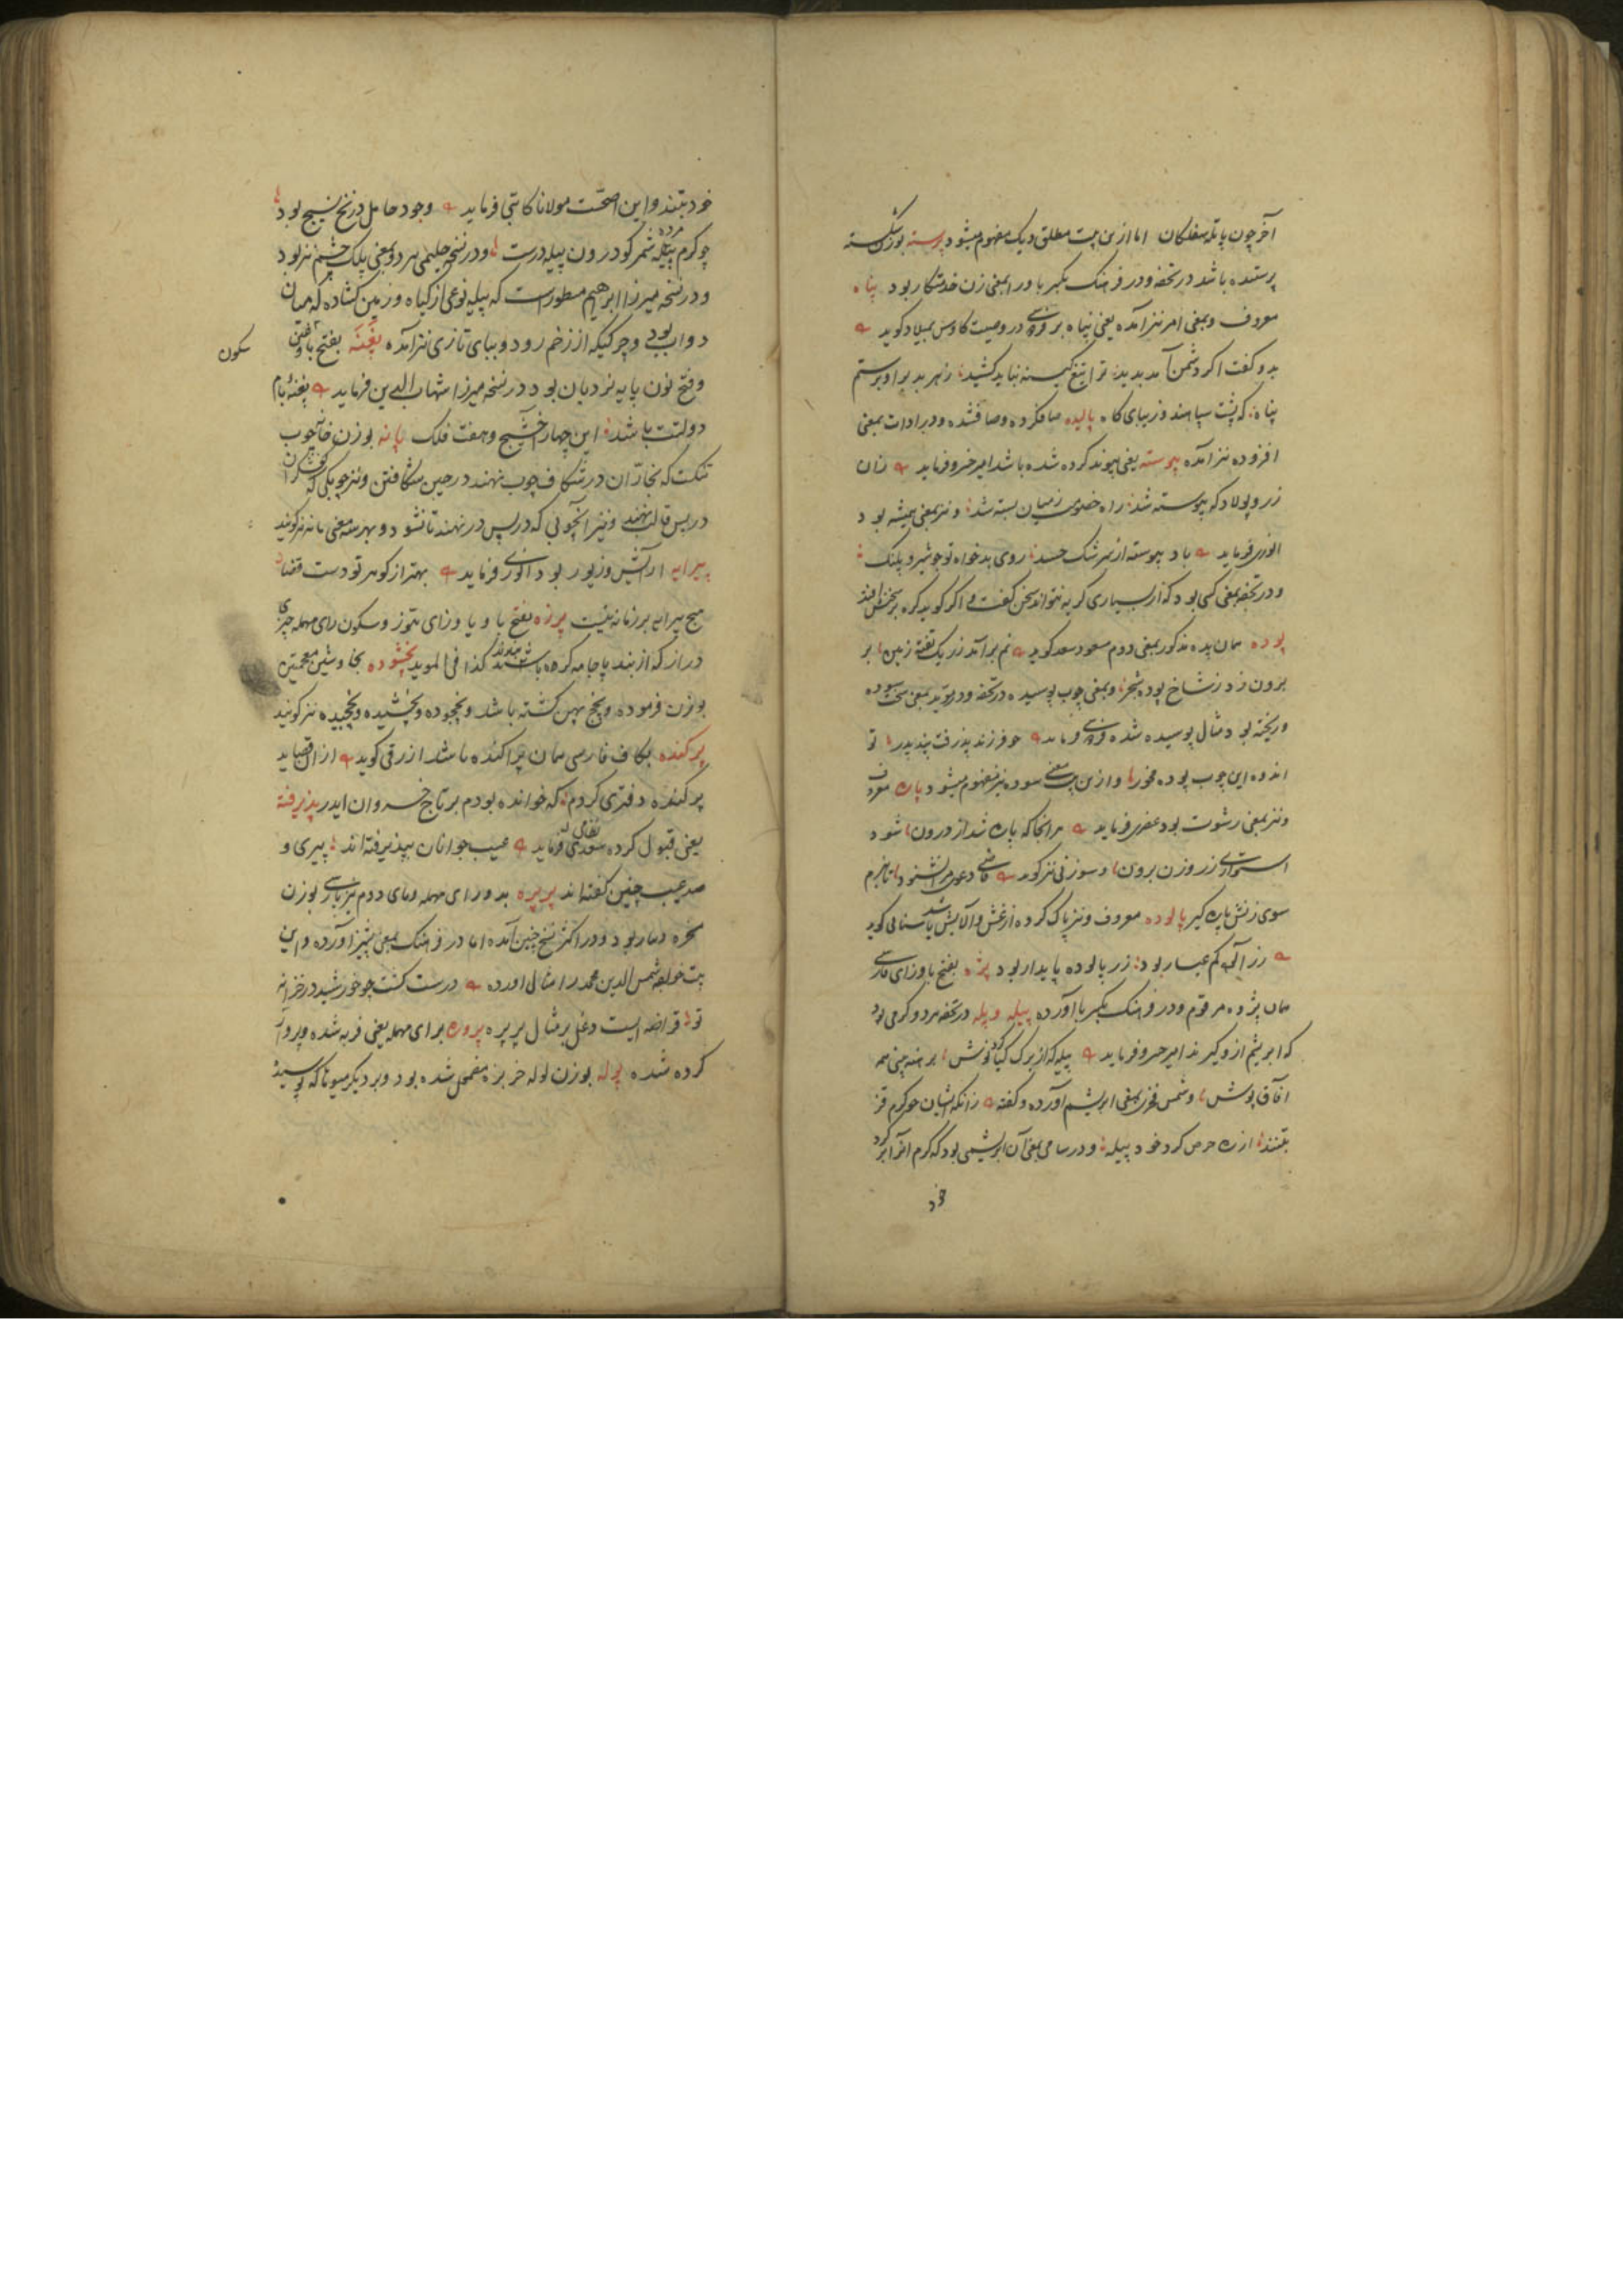 آخر چون پاتله سفلکان اما ازین بیت مطلق دیک مفهوم میشود پرسته بوزن شکسته
پرستنده باشد در تحفه و در فرهنک بکسر با و را بمعنی زن خدمتکار بود پناه
معروف و بمعنی امر نیز آمده یعنی پناه بر فردوسی در وصیت کاوس بمیلاد کوید
بدو کفت اکر دشمن آمد بدید ترا تیغ کینه نباید کشید ز هر بد براو برستم
پناه که پشت سپاهند و زیبای کاه پالیده صاف کرده و صاف شده و در ادات بمعنی
افزوده نیز آمده پیوسته یعنی پیوند کرده شده باشد امیر خسرو فرماید زان
زر و پولاد که پیوسته شد راه خصومت ز میان بسته شد و نیز بمعنی همیشه بود
انوری فرماید باد پیوسته از سرشک حسد روی بدخواه تو چو شیر و پلنک
و در تحفه بمعنی کسی بود که از بسیاری کریه نتواند سخن کفت و اکر کوید کره بر سخنش افتد
پوده همان پده مذکور بمعنی دوم مسعود سعد کوید نم برآمد ز ریک تفته زمین بر
برون زد ز شاخ پوده شجر و بمعنی چوب پوسیده در تحفه و در موید بمعنی سخت سوده
و ریخته بود مثال پوسیده شده فردوسی فرماید چو فرزند پذرفت پند پدر تو
اندوه این چوب پوده مخور و ازین بیت معنی سوده نیز مفهوم میشود پاره معروف
و نیز بمعنی رشوت بود عنصری فرماید هر آنجا که پاره شد از درون شود
استواری ز روزن برون و سوزنی نیز کوید قاضی دعوی مرا نشنود تا نبرم
سوی زنش پاره کیر پالوده معروف و نیز پاک کرده از غش و آلایش باشد سنائی کوید
زر آلوده کم عیار بود زر پالوده پایدار بود پژه بفتح با و زای فارسی
همان پژوه مرقوم و در فرهنک بکسر با آورده پیله و پله در تحفه هر دو کرمی بود
که ابریشم ازو کیرند امیر خسرو فرماید پیله که از برک کیا کرد نوش برهنه بینی همه
آفاق پوش و شمس فخری بمعنی ابریشم آورده و کفته زانکه ایشان چو کرم قز
بتنند از ره حرص کرد خود پیله و در سامی بمعنی آن ابریشمی بود که کرم آنرا بر کرد
خود
خود بتند و این اصحّست مولانا کاتبی فرماید وجود حامل در نخ نسیج بود
چو کرم پیله مرده شمر کو درون پیله درست و در نسخه حلیمی هر دو بمعنی پلک چشم نیز بود
و در نسخه میرزا ابرهیم مسطورست که پیله نوعی از کیاه و زمین کشاده که میان
دو آب بود و چرکیکه از زخم رود و ببای تازی نیز آمده پغنه بفتح با و غین
سکون
و فتح نون پایه نردبان بود در نسخه میرزا شهاب الدین فرماید پغنهٔ بام
دولتت باشد این چهار آخشیج و هفت فلک پانه بوزن خانه چوب
تنکست که نجاران در شکاف چوب نهند در حین شکافتن و نیز چوبکی که کفشکران
در پس قالب نهند و نیز آنچوبی که در پس در نهند تا نشود و بهر سه معنی فانه نیز کویند
پیرایه آرایش و زیور بود انوری فرماید بهتر از کوهر تو دست قضا
هیچ پیرایه بر زمانه نبست پرزه بفتح با و یا و زای تموز و سکون رای مهمله چیزی
دراز که از بند پاجامه کرده باشند کذا فی الموید پخشوده بخا و شین معجمتین
بوزن فرموده و پخچ پهن کشته باشد و پخچوده و پخشیده و پخچیده نیز کویند
پرکنده بکاف فارسی همان پراکنده باشد ازرقی کوید از آن قصاید
پرکنده دفتری کردم که خوانده بودم بر تاج خسروان ایدر پذیرفته
یعنی قبول کرده نظامی فرماید عیب جوانان بپذیرفته اند پیری و
صد عیب چنین کفته اند پرپره بدو رای مهمله و بای دوم نیز پارسی بوزن
و در اکثر نسخ چنین آمده اما در فرهنک بمعنی پشیز آورده و این
بیت خواجه شمس الدین محمد را مثال آورده درست کشت چو خورشید در خزانه
تو قراضه ایست دغل بر مثال پرپره پروره برای مهمله یعنی فربه شده و پروار
کرده شده پوله بوزن لوله خربزه مضمحل شده بود و بر دیکر میوها که پوسیده